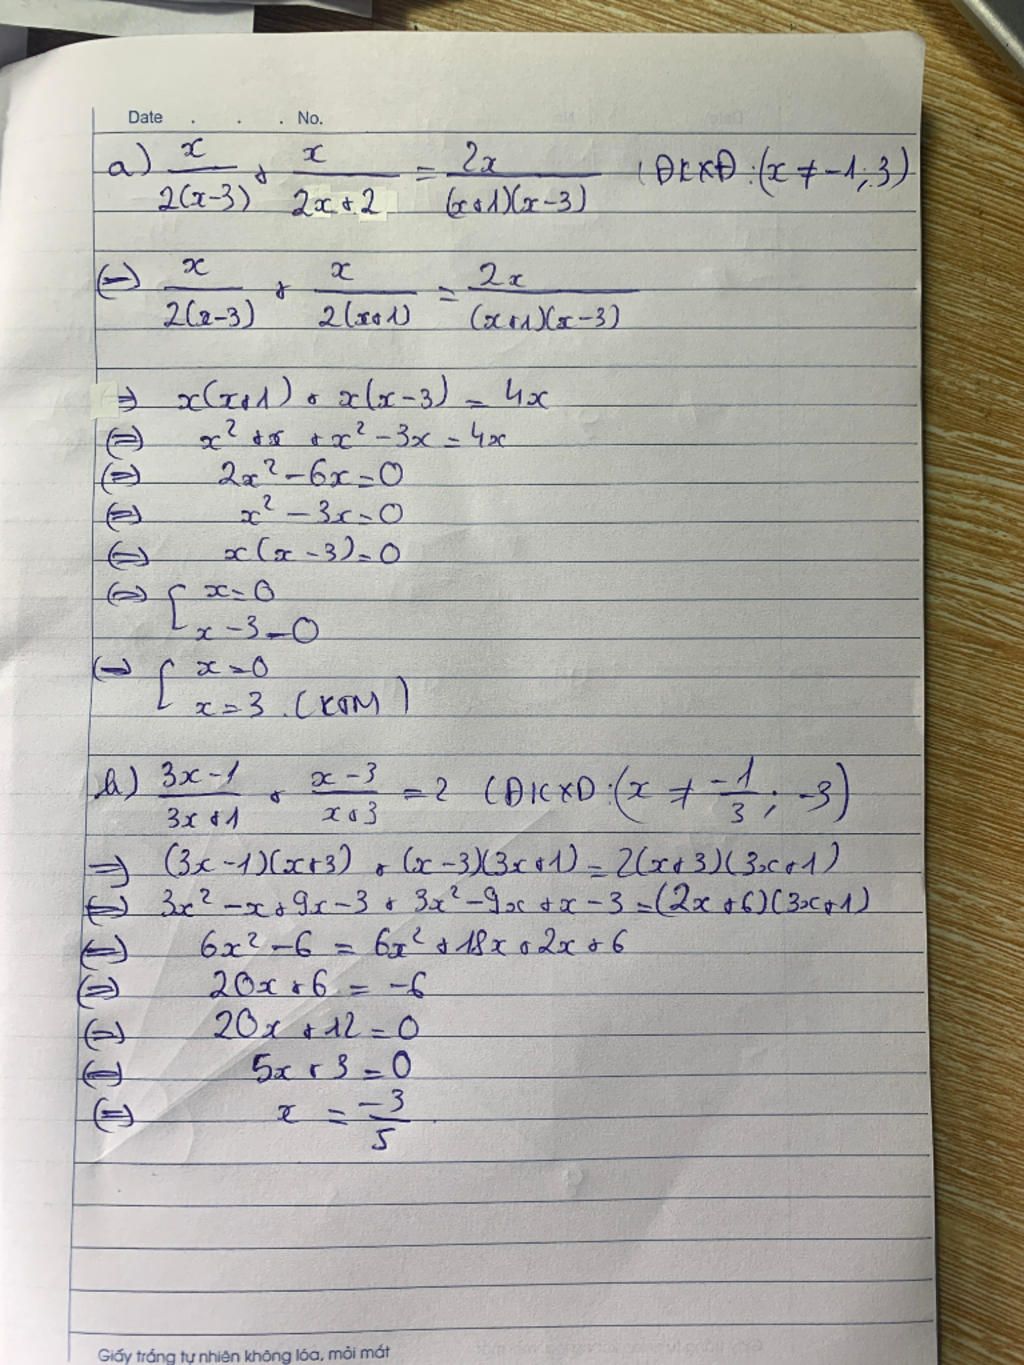 Date . . . No.
a) x/(2(x-3)) + x/(2x+2) = 2x/((x+1)(x-3)) (ĐKXĐ:(x ≠ -1; 3)
(=) x/(2(x-3)) + x/(2(x+1)) = 2x/((x+1)(x-3))
=) x(x+1) + x(x-3) = 4x
(=) x² + x + x² - 3x = 4x
(=) 2x² - 6x = 0
(=) x² - 3x = 0
(=) x(x-3) = 0
(=) [ x = 0
x - 3 = 0
(=) [ x = 0
x = 3 . (KTM)
b) (3x-1)/(3x+1) + (x-3)/(x+3) = 2 (ĐKXĐ:(x ≠ -1/3; -3)
=) (3x-1)(x+3) + (x-3)(3x+1) = 2(x+3)(3x+1)
(=) 3x² - x + 9x - 3 + 3x² - 9x + x - 3 = (2x+6)(3x+1)
(=) 6x² - 6 = 6x² + 18x + 2x + 6
(=) 20x + 6 = -6
(=) 20x + 12 = 0
(=) 5x + 3 = 0
(=) x = -3/5
Giấy trắng tự nhiên không lóa, mỏi mắt